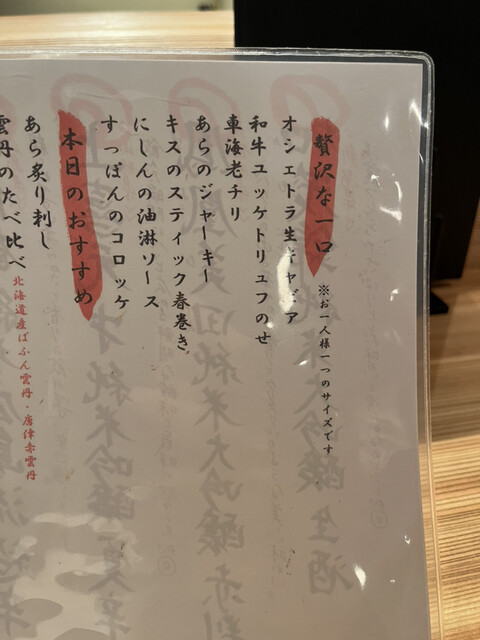 贅沢な一口 ※お一人様一つのサイズです
オシェトラ生キャビア
和牛ユッケトリュフのせ
車海老チリ
あらのジャーキー
キスのスティック春巻き
にしんの油淋ソース
すっぽんのコロッケ
本日のおすすめ
あら炙り刺し
雲丹のたべ比べ 北海道産ばふん雲丹・唐津赤雲丹